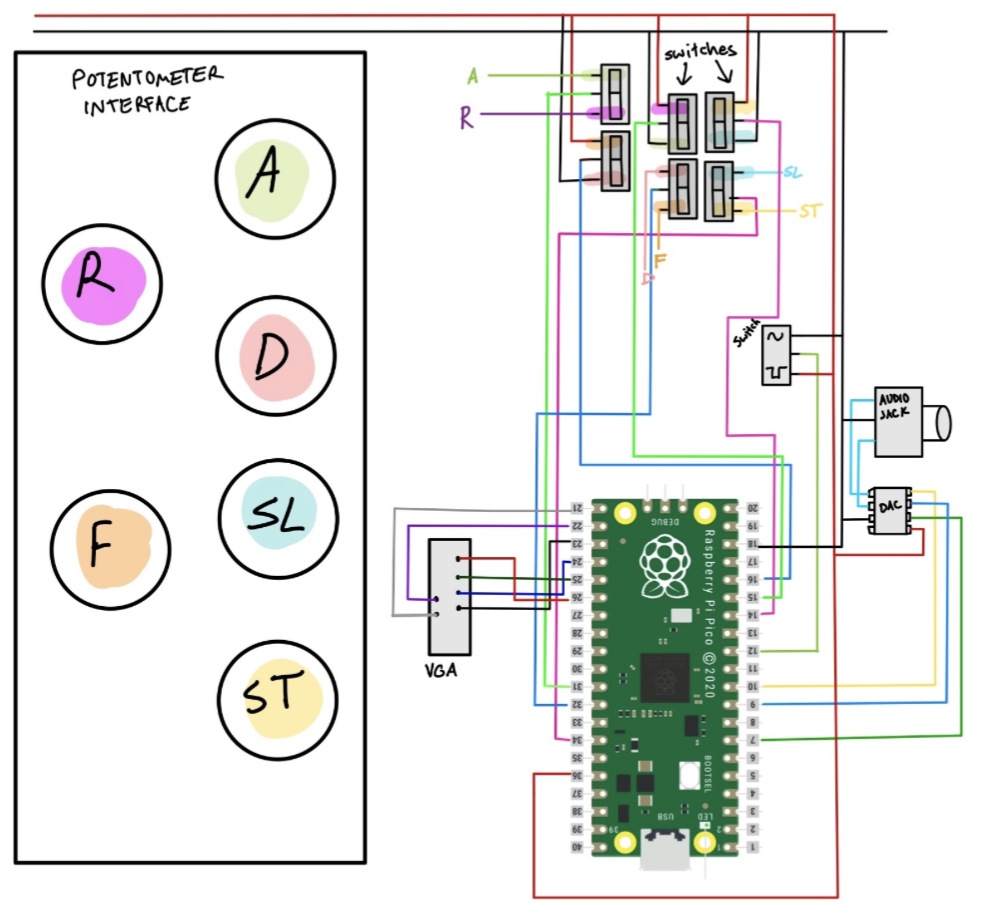 POTENTOMETER
INTERFACE
A
R
D
F
SL
ST
switches
A
R
SL
ST
F
D
switch
AUDIO
JACK
DAC
VGA
DEBUG
Raspberry Pi Pico © 2020
BOOTSEL
USB
LED
39
2
1
21
22
23
24
25
26
27
28
29
30
31
32
33
34
35
36
37
38
39
40
20
19
18
17
16
15
14
13
12
11
10
9
8
7
6
5
4
3
2
1